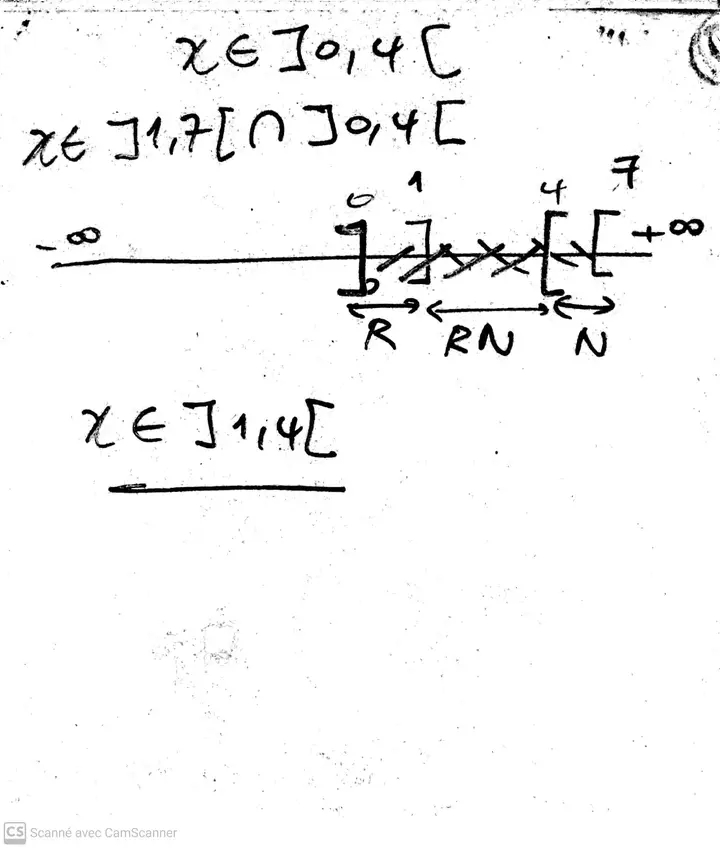 x ∈ ]0,4[
x ∈ ]1,7[ ∩ ]0,4[
0 1 4 7
-∞ ] ] [ [ +∞
R RN N
x ∈ ]1,4[
CS Scanné avec CamScanner